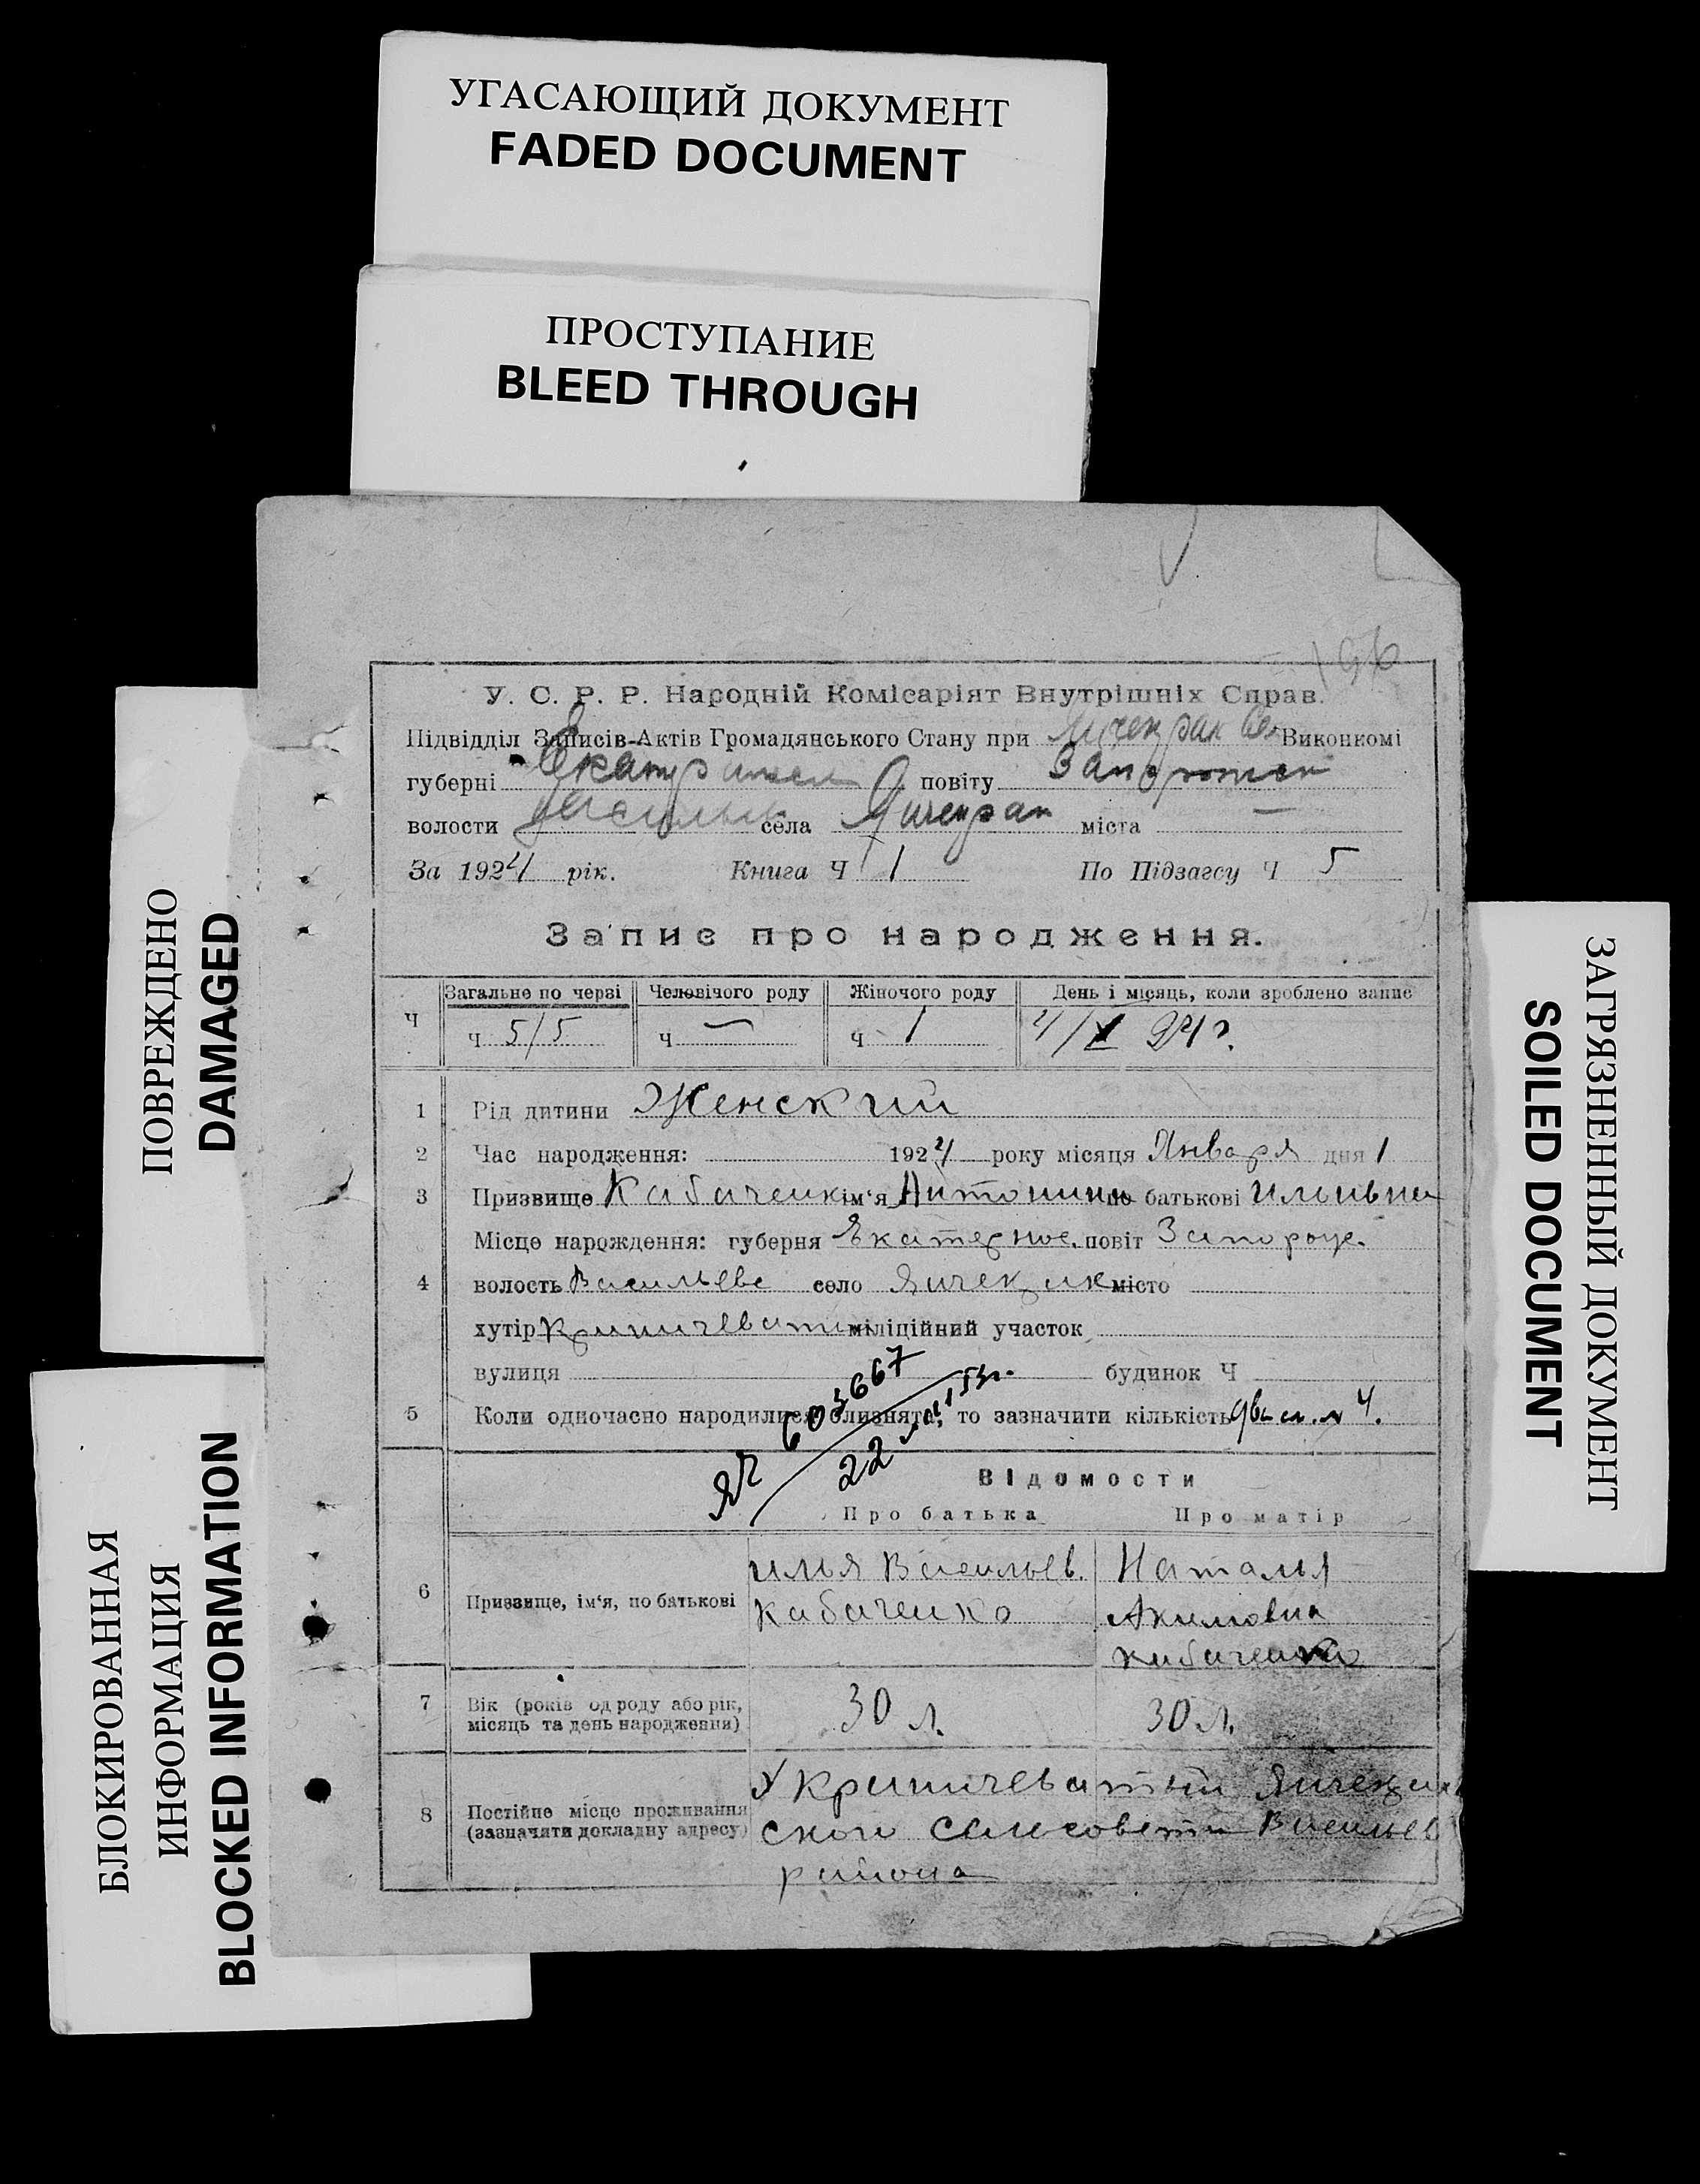 УГАСАЮЩИЙ ДОКУМЕНТ
FADED DOCUMENT
ПРОСТУПАНИЕ
BLEED THROUGH
ПОВРЕЖДЕНО
DAMAGED
БЛОКИРОВАННАЯ
ИНФОРМАЦИЯ
BLOCKED INFORMATION
ЗАГРЯЗНЕННЫЙ ДОКУМЕНТ
SOILED DOCUMENT
196
У. С. Р. Р. Народній Комісаріят Внутрішніх Справ.
Підвідділ Записів-Актів Громадянського Стану при Виконкомі
губерні повіту
волости села Янчекрак міста —
За 1924 рік. Книга Ч 1 По Підзагсу Ч 5
Запис про народження.
Ч Загальне по черзі Человічого роду Жіночого роду День і місяць, коли зроблено запис
ч 5/5 ч — ч 1 4/I 24 г.
1 Рід дитини Женский
2 Час народження: 1924 року місяця Января дня 1
3 Призвище Кабаченк ім‘я Антонина по батькові Ильивна
Місце нарождення: губерня Екатерино. повіт Запорож.
4 волость Васильевс село Янчекрак місто
хутір Криничеватый міліційний участок
вулиця будинок Ч
5 Коли одночасно народилися близнята, то зазначити кількість
603667
22
Відомости
Про батька Про матір
6 Призвище, ім‘я, по батькові Илья Васильев. Наталья
Кабаченко Акимовна
Кабаченко
7 Вік (років од роду або рік, 30 л. 30 л.
місяць та день народження)
8 Постійне місце проживання Х Криничеватый Янчекрак
(зазначити докладну адресу) ского сельсовета Васильев
района